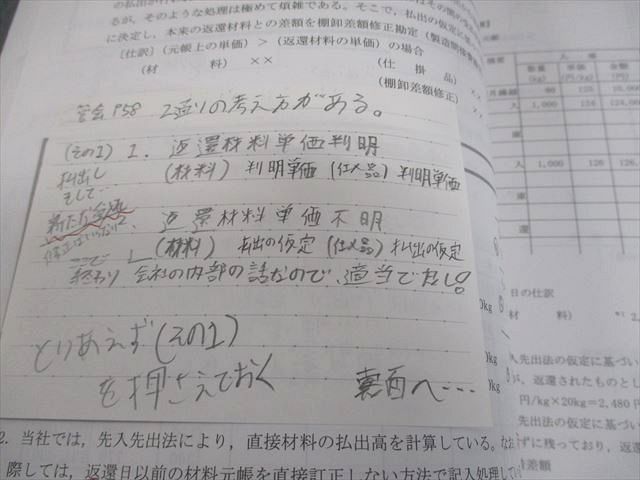 るが，そのような処理は極めて煩雑である。そこで，払出の
に決定し，本来の返還材料との差額を棚卸差額修正勘定（製造間接費
〔仕訳〕（元帳上の単価）＞（返還材料の単価）の場合
（材 料） ×× （仕 掛 品） ××
（棚卸差額修正） ××
P58 2通りの考え方がある。
(その1) 1. 返還材料単価判明
払出し
そして…
(材料) 判明単価 (仕入品) 判明単価
返還材料単価不明
(材料) 払出の仮定 (仕入品) 払出の仮定
終わり 会社の内部の話なので、適当でよし!
とりあえず(その1)
を押さえておく 裏面へ…
2. 当社では，先入先出法により，直接材料の払出高を計算している。なお
際しては，返還日以前の材料元帳を直接訂正しない方法で記入処理して
摘要 入 庫
数量 単価 金額
(kg) (円/kg) (円)
1,000 126
庫
入 1,000 126
庫
還
日の仕訳
材 料）
入先出法の仮定に基づい
が，返還されたものとし
円/kg×20kg＝2,480円
先出法の仮定に基づい
ずに残っており，返還
差額